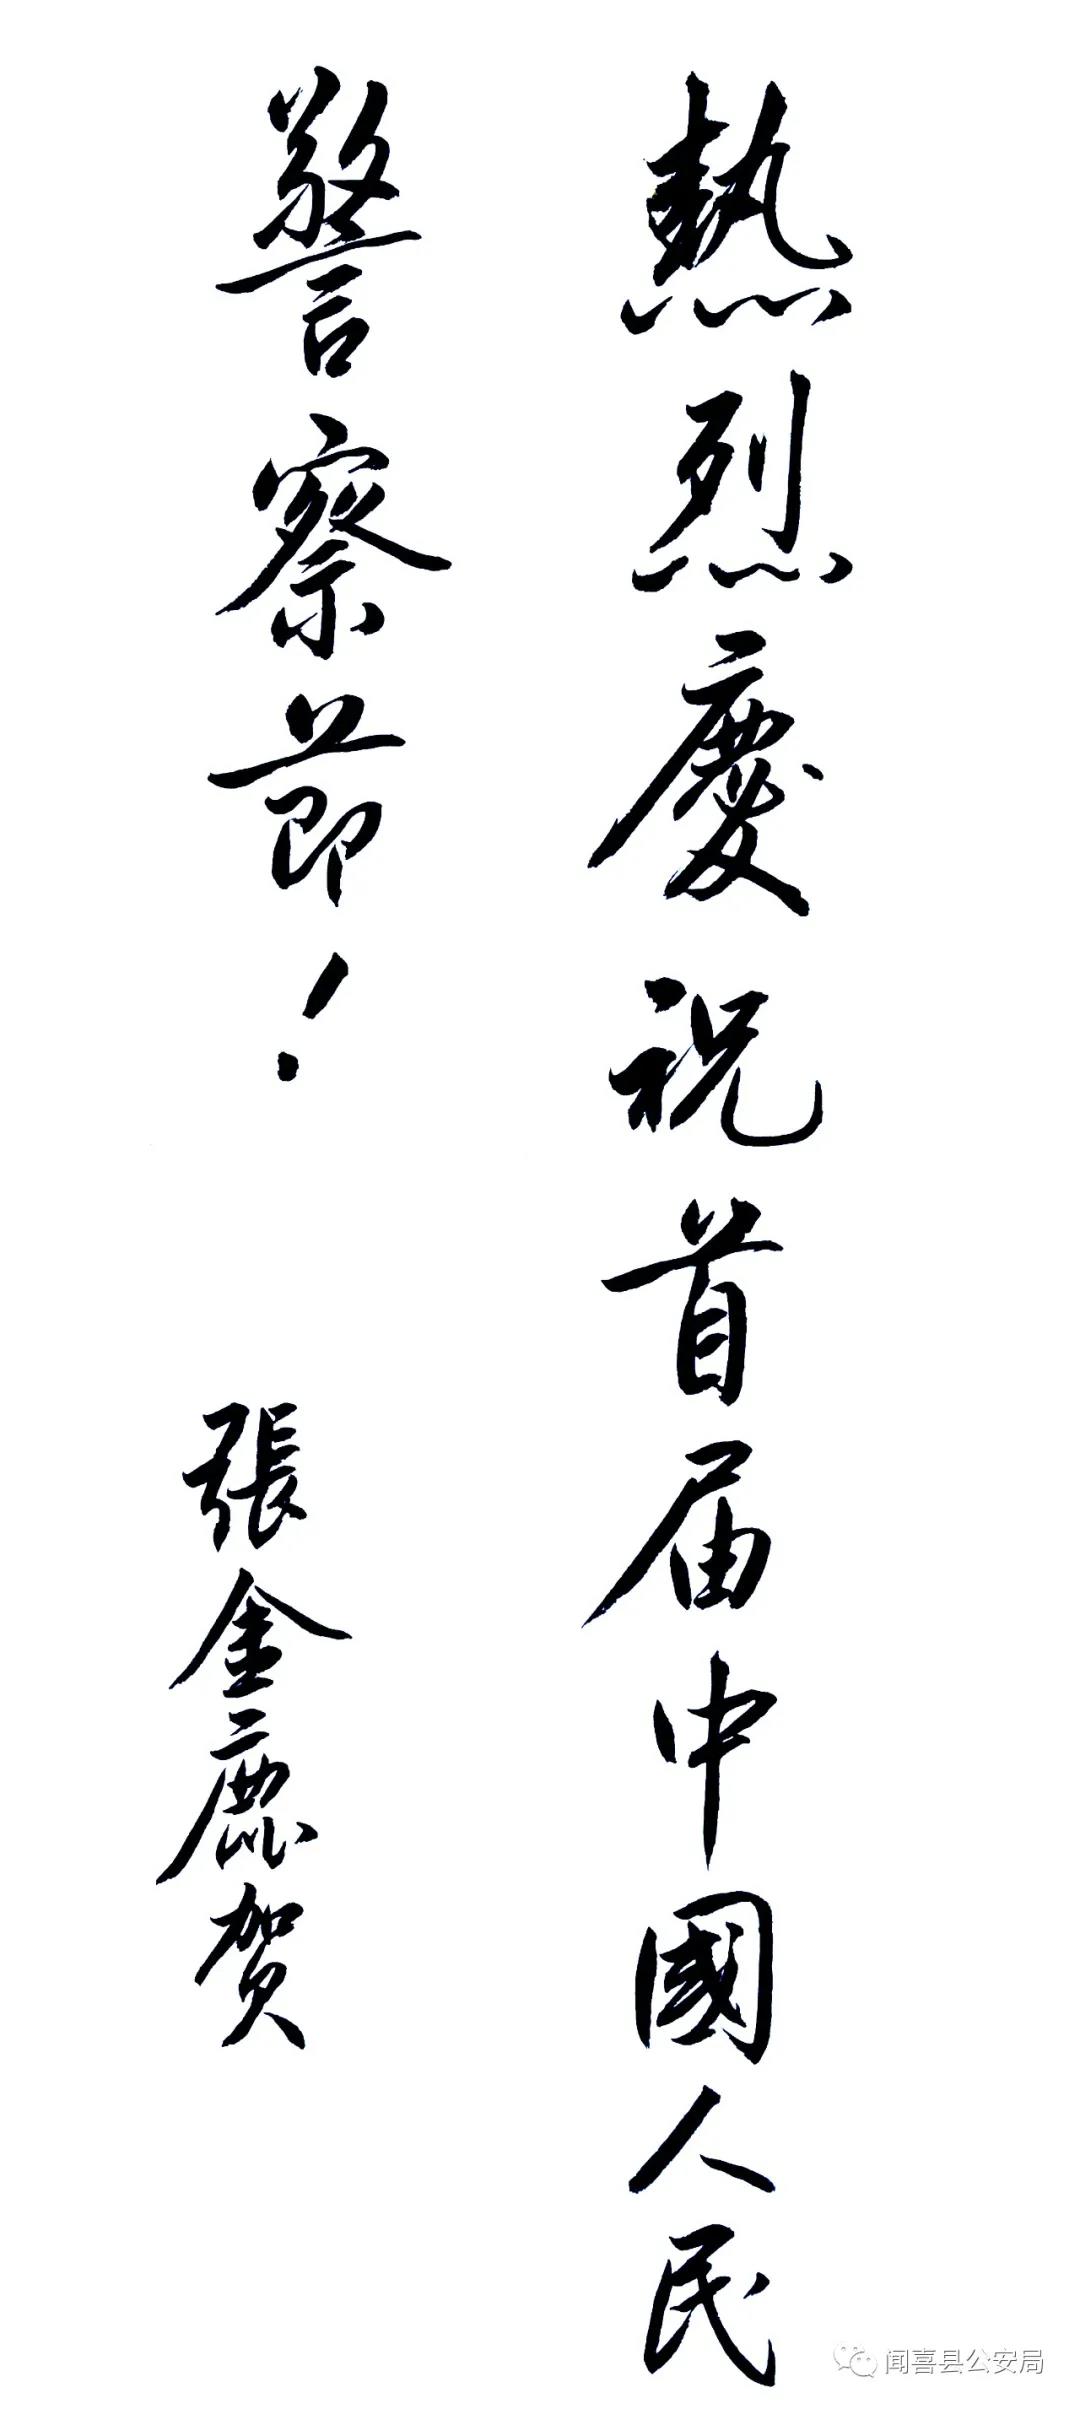 熱烈慶祝首届中國人民
警察節！
張金鹿贺
闻喜县公安局